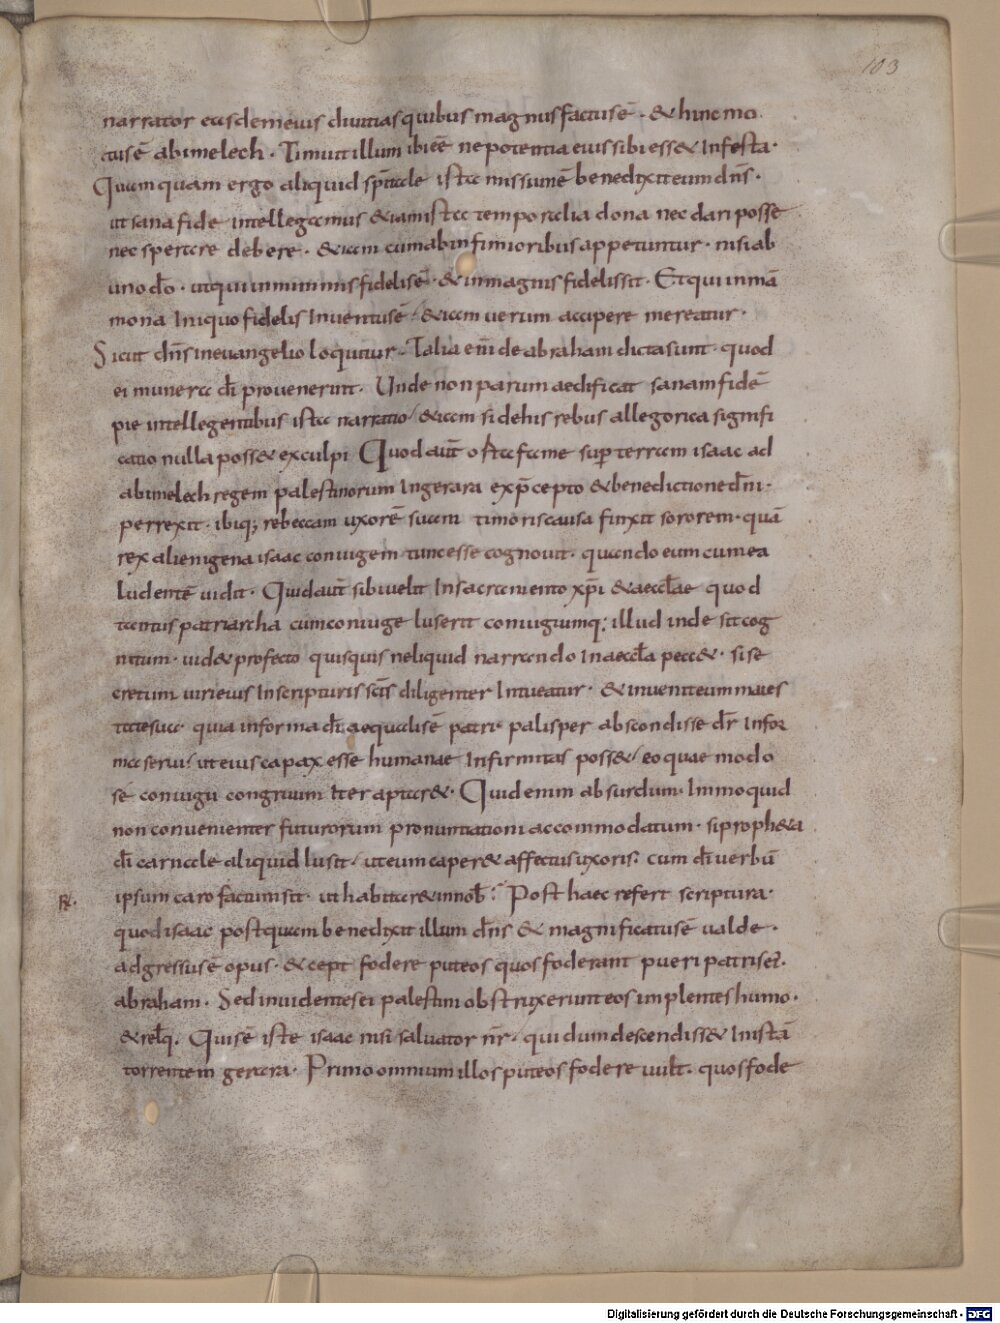 103
narrator easdem eius diuitias quibus magnus factus ē · & hinc mo
tus ē abimelech · Timuit illum ibi eē ne potentia eius sibi ess& Infesta ·
Quamquam ergo aliquid sp̄itale ista missum ē benedixit eum dn̄s ·
ut sana fide intellegamus & iam ista temporalia dona nec dari posse
nec sperare debere · & iam cum ab infimioribus appetuntur · nisi ab
uno do͞ · ut qui in minimis fidelis ē · & in magnis fidelis sit · Et qui in mā
mona Iniquo fidelis Inuentus ē / & iam uerum accipere mereatur ·
Sicut dn̄s in euangelio loquitur · Talia em̄ de abraham dicta sunt · quod
ei munera dī prouenerint · Unde non parum aedificat sanam fidē
pie intellegentibus ista narratio / & iam si de his rebus allegorica signifi
catio nulla poss& exculpi Quod aūt ostea fame sup̄ terram isaac ad
abimelech regem palestinorum In gerara ex p̄cepto & benedictione dn̄i ·
perrexit · ibiq; rebeccam uxorē suam timoris causa finxit sororem · quā
rex alienigena isaac coniugem tunc esse cognouit · quando eum cum ea
ludentē uidit · Quid aūt sibi uelit In sacramento xp̄i & aeccl̄ae quod
tantus patriarcha cum coniuge luserit coniugiumq; illud inde sit cog
nitum · uid& profecto quisquis ne liquid narrando In aeccl̄a pecc& · si se
cretum uiri eius In scripturis sc̄is diligenter Intueatur · & inueniteum maies
tate sua · qua in forma dī aequalis ē patri · palisper abscondisse dr̄ Infor
ma serui / ut eius capax esse humanae Infirmitas poss& / eo quae modo
se coniugii congruum l̄ter aptar& · Quid enim absurdum · Immo quid
non conuenienter futurorum pronuntiationi accommodatum · si proph&a
dī carnale aliquid lusit / ut eum caper& affectus uxoris · cum dī uerbū
ipsum caro factum sit · ut habitar& in nob̄ : Post haec refert scriptura ·
quod isaac postquam benedixit illum dn̄s & magnificatus ē ualde ·
adgressus ē opus · & cepit fodere puteos quos foderant pueri patris ei ·
abraham · Sed inuidentes ei palestini obstruxerunt eos implentes humo ·
& rel̄q · Quis ē iste isaac nisi saluator nr̄ · qui dum descendiss& In istā
torrentem gerara · Primo omnium illos puteos fodere uult · quos fode
Digitalisierung gefördert durch die Deutsche Forschungsgemeinschaft - DFG